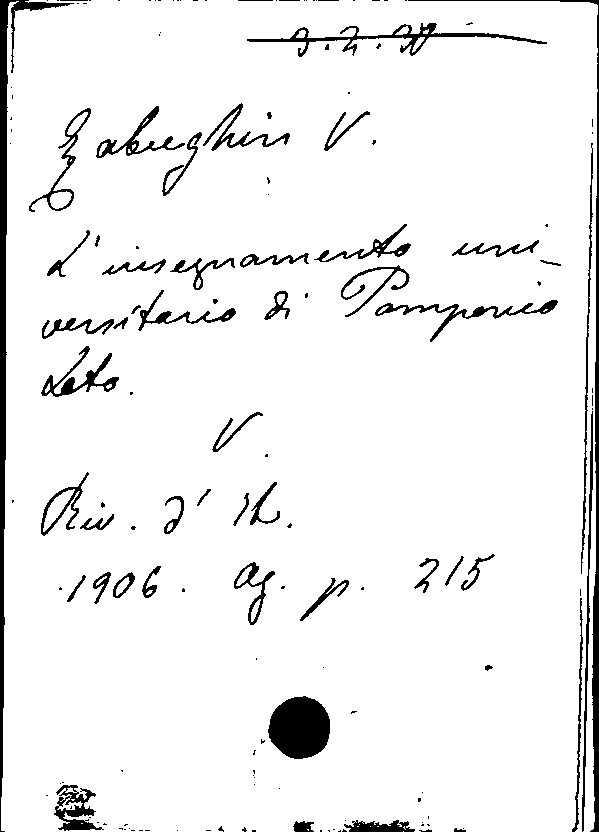 Zabughin V.
L'insegnamento uni-
versitario di Pomponio
Leto.
V.
Riv. d' It.
1906. Ag. p. 215